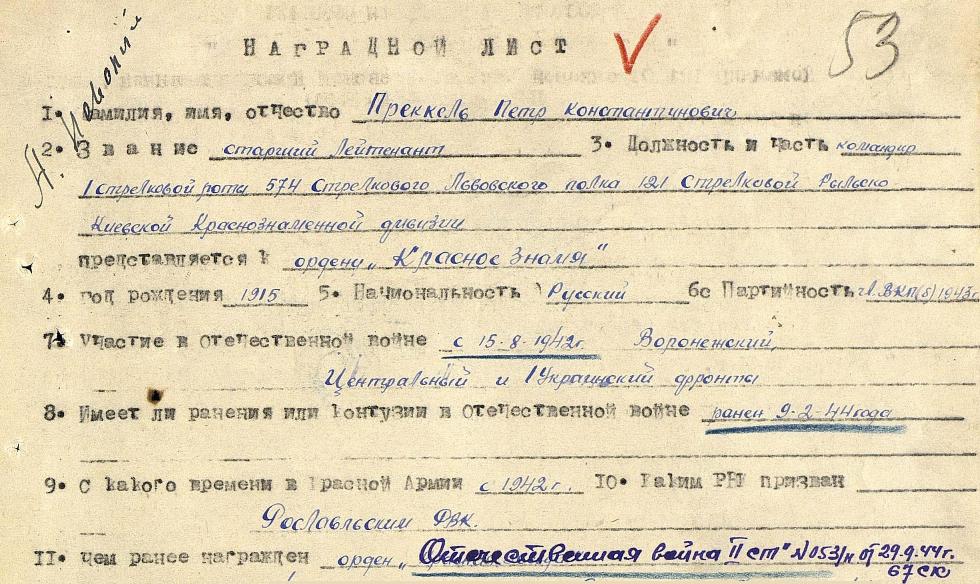 53
" НАГРАДНОЙ ЛИСТ "
1. Фамилия, имя, отчество Преккель Петр Константинович
2. Звание старший Лейтенант 3. Должность и часть командир
1 Стрелковой роты 574 Стрелкового Львовского полка 121 Стрелковой Рыльско
Киевской Краснознаменной дивизии
представляется к ордену „Красное Знамя"
4. год рождения 1915 5. Национальность Русский 6. Партийность чл. ВКП(б) 1943г
7. Участие в отечественной войне с 15-8-1942г. Воронежский,
Центральный и 1 Украинский фронты
8. Имеет ли ранения или контузии в отечественной войне ранен 9-2-44 года
9. С какого времени в Красной Армии с 1942г. 10. Каким РВК призван
Рославльским РВК.
11. Чем ранее награжден орден „Отечественная война II ст" №053/н от 29.9.44г.
67 СК